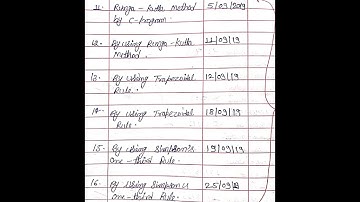 11. Runga - Kutta Method 5/03/2019
by C-program.
12. By using Runga - Kutta 11/03/19
Method.
13. By using Trapezoidal 12/03/19
Rule.
14. By using Trapezoidal 18/03/19
Rule.
15. By using Simpson's 19/03/19
one-third Rule.
16. By Using Simpson's 25/03/19
one-third Rule.